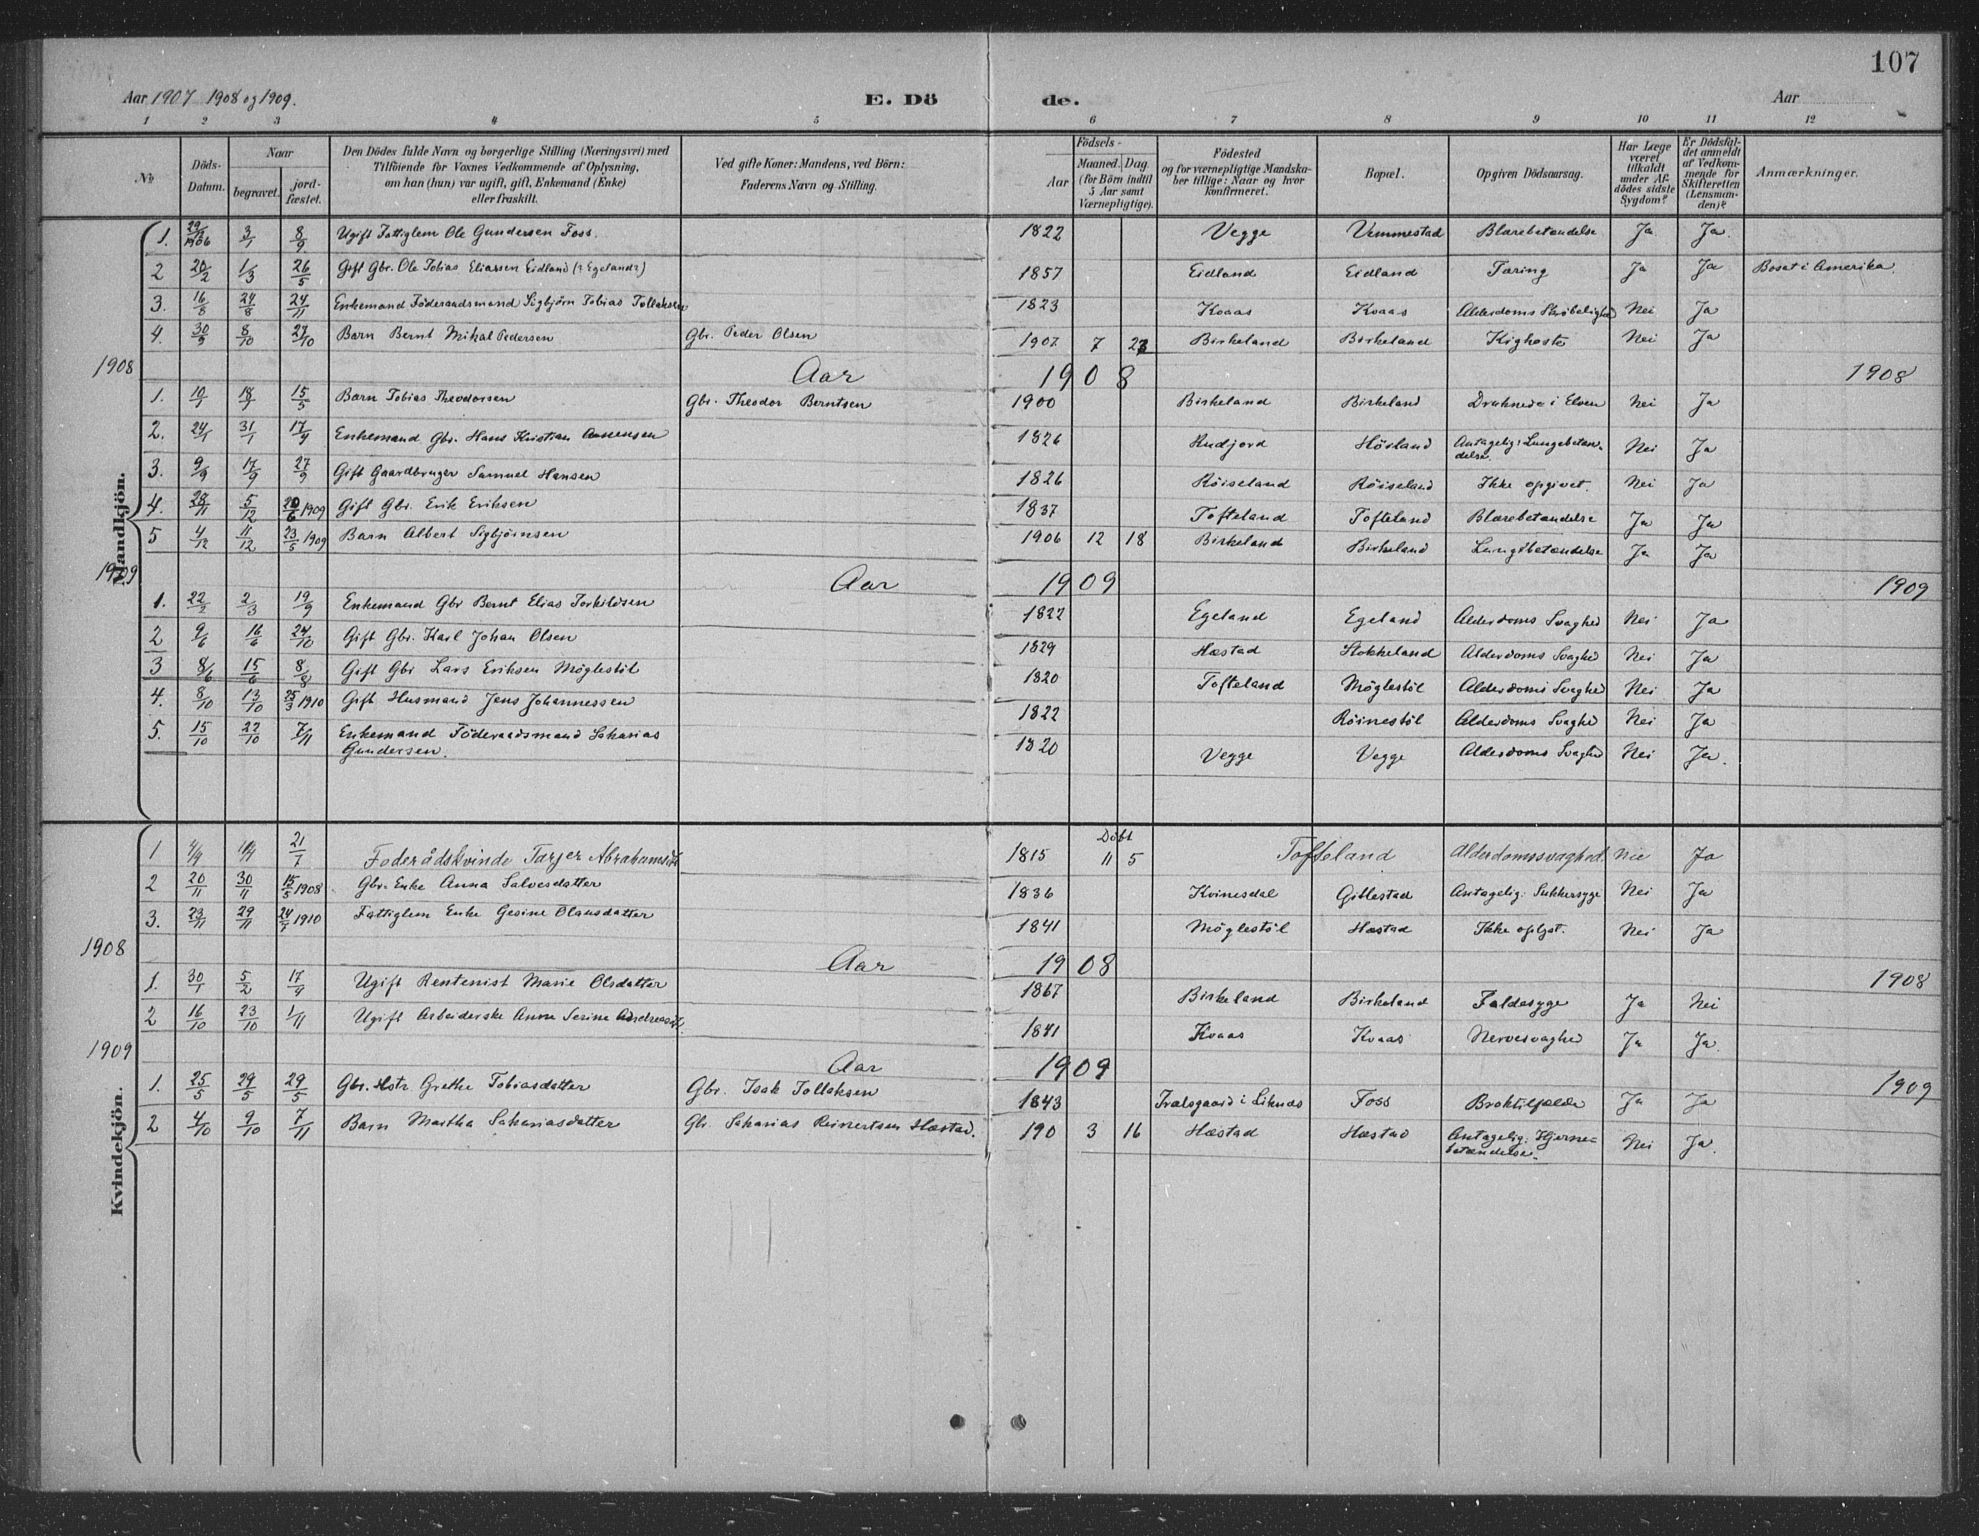 107
Aar 1907 1908 og 1909. E. Dö de. Aar
1 2 3 4 5 6 7 8 9 10 11 12
№ Döds-Datum. Naar begravet. jord-fæstet. Den Dödes fulde Navn og borgerlige Stilling (Næringsvei) med Tilföiende for Voxnes Vedkommende af Oplysning, om han (hun) var ugift, gift, Enkemand (Enke) eller fraskilt. Ved gifte Koner: Mandens, ved Börn: Faderens Navn og Stilling. Födsels- Aar Maaned. Dag (for Börn indtil 5 Aar samt Værnepligtige). Födested og for værnepligtige Mandska-ber tillige: Naar og hvor konfirmeret. Bopæl. Opgiven Dödsaarsag. Har Læge været tilkaldt under Af-dödes sidste Sygdom? Er Dödsfal-det anmeldt af Vedkom-mende for Skifteretten (Lensman-den)? Anmærkninger.
Mandkjön.
1. 29/12 1906 3/1 8/9 Ugift Fattiglem Ole Gundersen Foss. 1822 Vegge Vemmestad Blærebetændelse Ja Ja.
2 20/2 1/3 26/5 Gift Gbr. Ole Tobias Eliassen Eidland (? Egeland?) 1857 Eidland Eidland Tæring Ja Ja Bosat i Amerika.
3. 16/8 24/8 24/11 Enkemand Föderaadsmand Sigbjörn Tobias Tollaksen 1823 Kvaas Kvaas Alderdoms Skröbelighed Nei Ja
4. 30/9 8/10 27/10 Barn Bernt Mikal Pedersen Gbr. Peder Olsen 1907 7 23 Birkeland Birkeland Kighoste Nei Ja
1908 Aar 1908 1908
1. 10/1 18/1 15/5 Barn Tobias Theodorsen Gbr. Theodor Berntsen 1900 Birkeland Birkeland Druknede i Elven Nei Ja
2. 24/1 31/1 17/9 Enkemand Gbr. Hans Kristian Aanensen 1826 Rudjord Hörland Antagelig: Lungebetæn-delse Nei Ja
3. 9/9 17/9 27/9 Gift Gaardbruger Samuel Hansen 1826 Röiseland Röiseland Ikke opgivet. Nei Ja
4. 28/11 5/12 20/6 1909 Gift Gbr. Erik Eriksen 1837 Tofteland Tofteland Blærebetændelse Ja Ja
5 4/12 11/12 23/5 1909 Barn Albert Sigbjörnsen 1906 12 18 Birkeland Birkeland Lungebetændelse Ja Ja
1909 Aar 1909 1909
1. 22/2 2/3 19/9 Enkemand Gbr Bernt Elias Torkildsen 1822 Egeland Egeland Alderdoms Svaghed Nei Ja
2 9/6 16/6 24/10 Gift Gbr. Karl Johan Olsen 1829 Hæstad Stokkeland Alderdoms Svaghed Nei Ja
3 8/6 15/6 8/8 Gift Gbr Lars Eriksen Möglestöl 1820 Tofteland Möglestöl Alderdoms Svaghed Nei Ja
4. 8/10 13/10 25/3 1910 Gift Husmand Jens Johannessen 1822 Röinestöl Alderdoms Svaghed Nei Ja
5. 15/10 22/10 7/11 Enkemand Föderaadsmand Sakarias Gundersen. 1820 Vegge Vegge Alderdoms Svaghed Nei Ja.
Kvindekjön.
1 4/9 21/7 Föderådskvinde Tarjer Abrahamsdt 1815 Döbt 11 5 Tofteland Alderdomssvaghed. Nei Ja
2 20/11 30/11 15/5 1908 Gbr. Enke Anna Salvesdatter 1836 Kvinesdal Gitlestad Antagelig: Sukkersyge Nei Ja
3. 23/11 29/11 24/7 1910 Fattiglem Enke Gesine Olausdatter 1841 Möglestöl Hæstad Ikke oplyst. Nei Ja
1908 Aar 1908 1908
1. 30/1 5/2 17/9 Ugift Rentenist Marie Olsdatter 1867 Birkeland Birkeland Faldesyge Ja Nei
2 16/10 23/10 1/11 Ugift Arbeiderske Anne Serine Andreasdt. 1841 Kvaas Kvaas Nervesvaghed Ja Ja.
1909 Aar 1909 1909
1. 25/5 29/5 29/5 Gbr. Hstr. Grethe Tobiasdatter Gbr. Isak Tollaksen 1843 Trælsgaard i Liknes Foss Broktilfælde Ja Ja
2 4/10 9/10 7/11 Barn Martha Sakariasdatter Gbr. Sakarias Reinertsen Hæstad. 190 3 16 Hæstad Hæstad Antagelig: Hjerne=betændelse. Nei Ja.